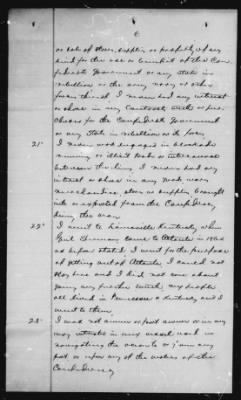 6
or sale of stores, supplies or property of any
kind for the use or benefit of the Con-
federate Government or any State in
rebellion or the army navy or other
forces thereof. I never had any interest
or share in any Contract with or pur-
chases for the Confederate Government
or any State in rebellion or its forces
21st I never was engaged in blockade
running or illicit trade or intercourse
between the lines I never had any
interest or share in any
merchandise, stores or supplies brought
into or exported from the Confederacy
during the war
22d I went to Louisville Kentucky when
Genl Sherman came to Atlanta in 1864
as before stated I went for the purpose
of getting out of Atlanta I could not
stay here and I did not care about
going any further South, my people
all lived in Tennessee & Kentucky and I
went to them
23d I was not owner or part owner or in any
way interested in any vessel used in
navigating the ocean to or from any
port in or upon any of the waters of the
Confederacy